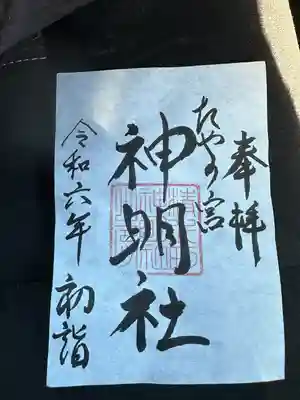 奉拝
たやの宮
神明社
令和六年
初詣